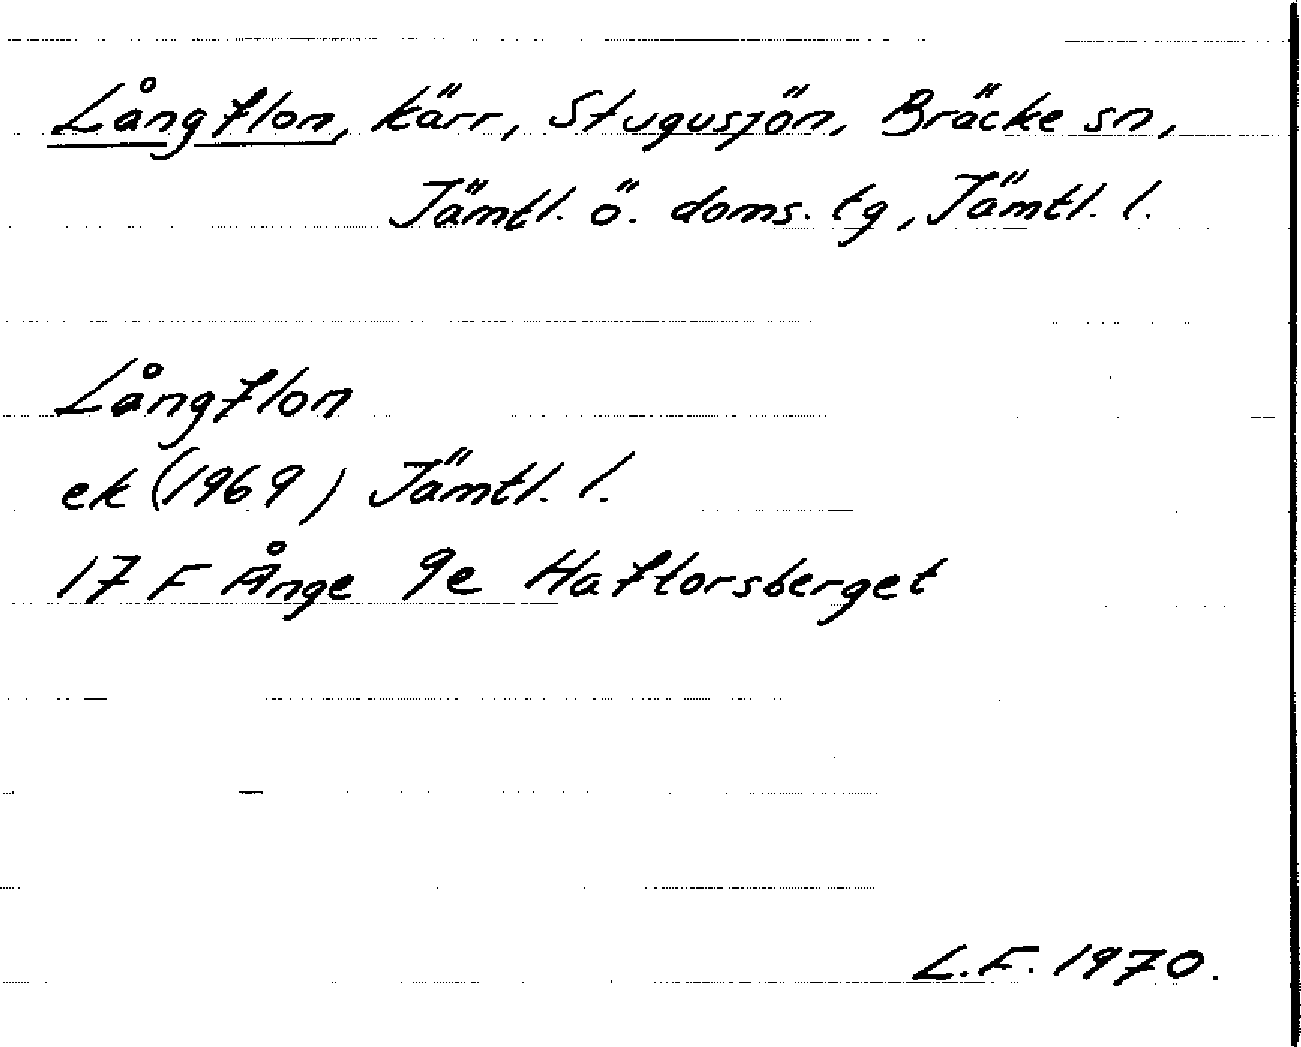 Långflon, kärr, Stugusjön, Bräcke sn,
Jämtl. ö. doms. tg, Jämtl. l.
Långflon
ek (1969) Jämtl. l.
17 F Ånge 9e Haftorsberget
L.F. 1970.